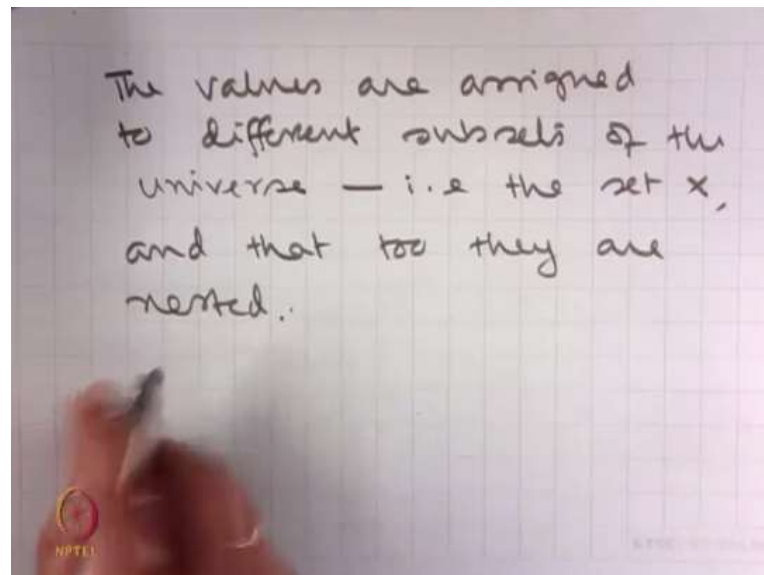 The values are assigned
to different subsets of the
universe — i.e the set X,
and that too they are
nested.
NPTEL